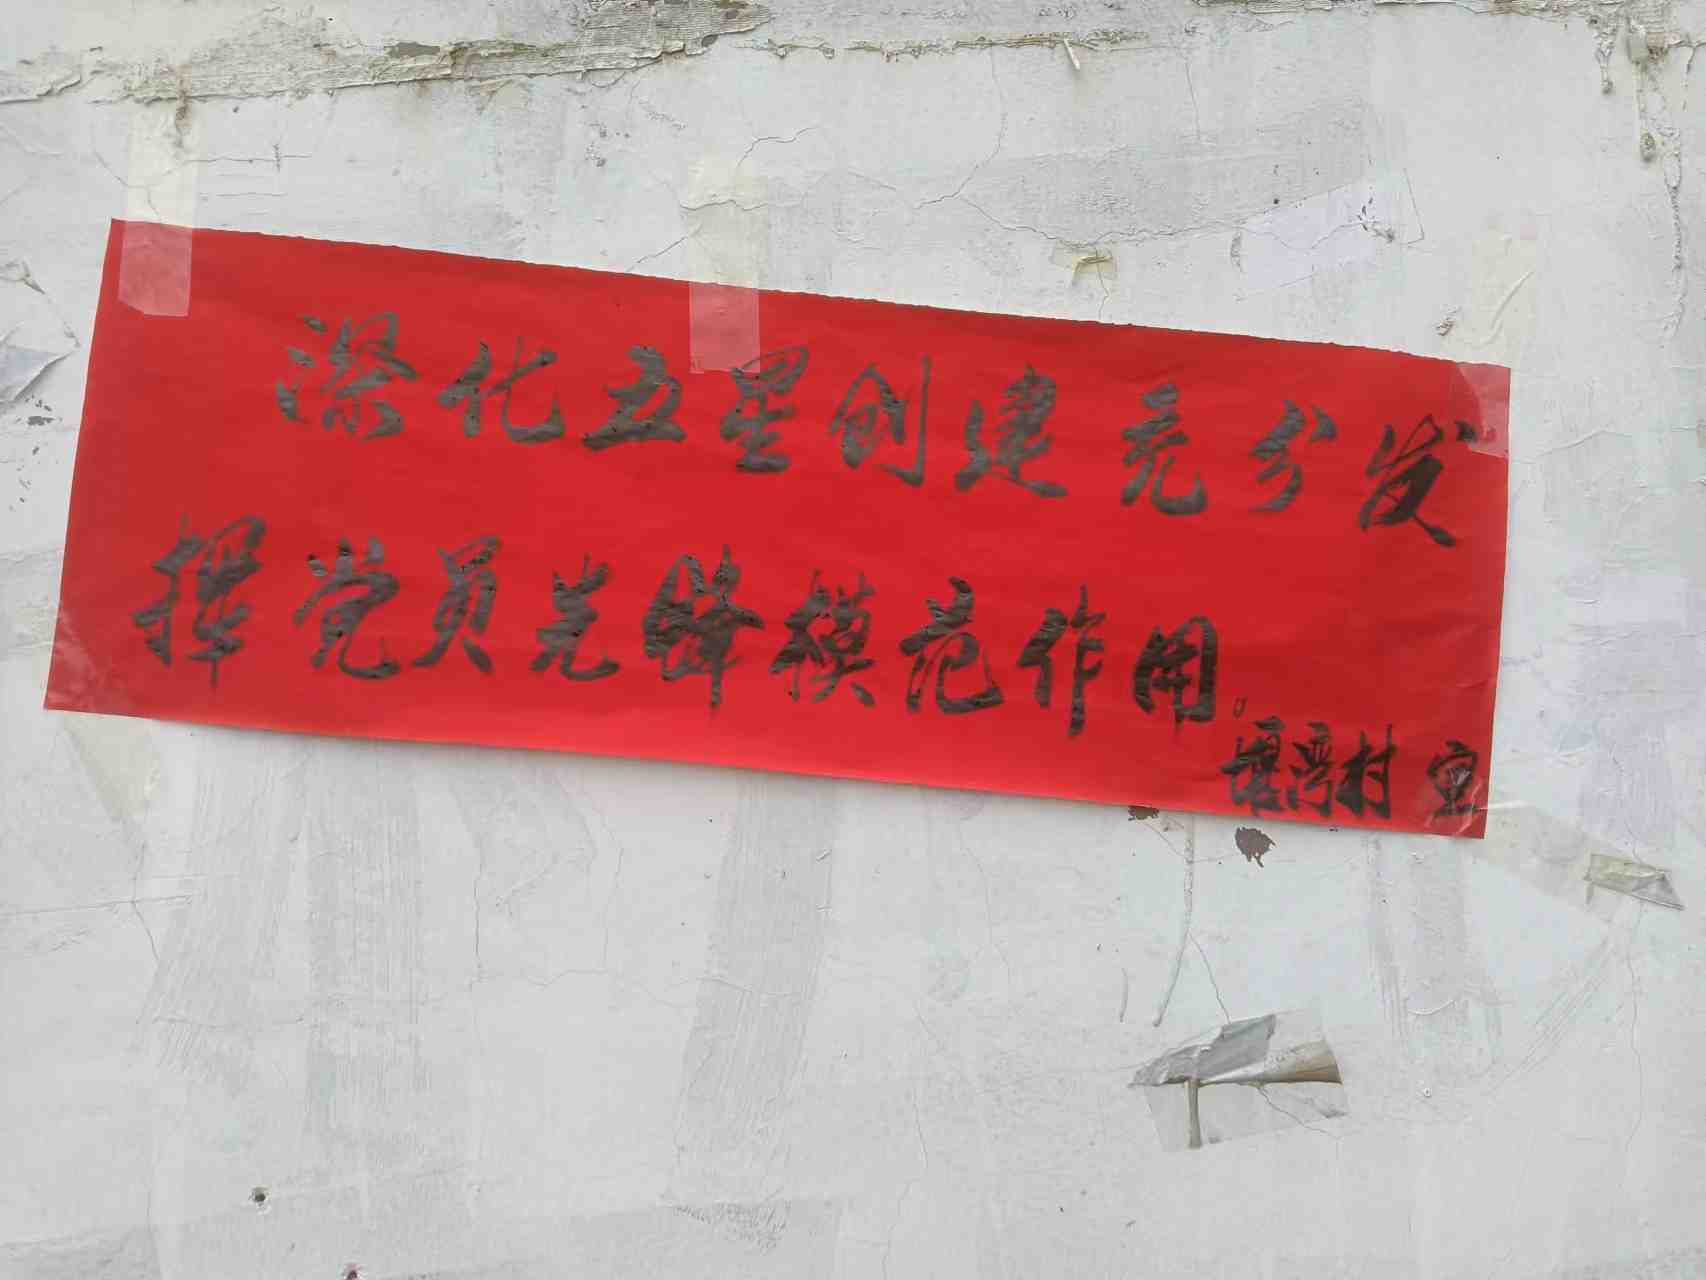 深化五星创建充分发
挥党员先锋模范作用。
堰湾村 宣